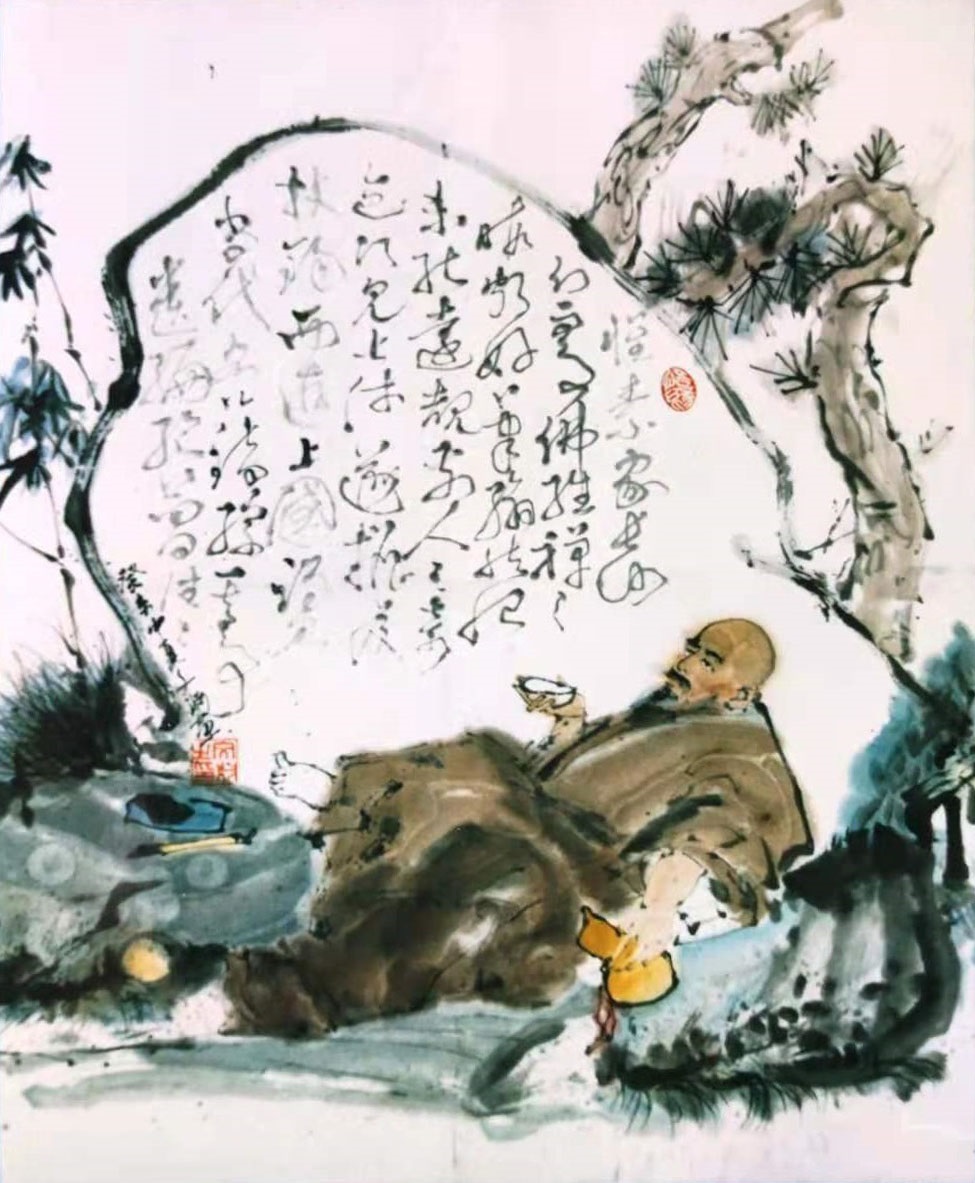 懷素家長沙
幼而事佛經禪之
暇頗好筆翰然恨
未能遠覩前人之奇
迹所見甚淺遂擔笈
杖錫西遊上國謁見
當代名公錯綜其事
遺編絕簡往往
癸未中夏